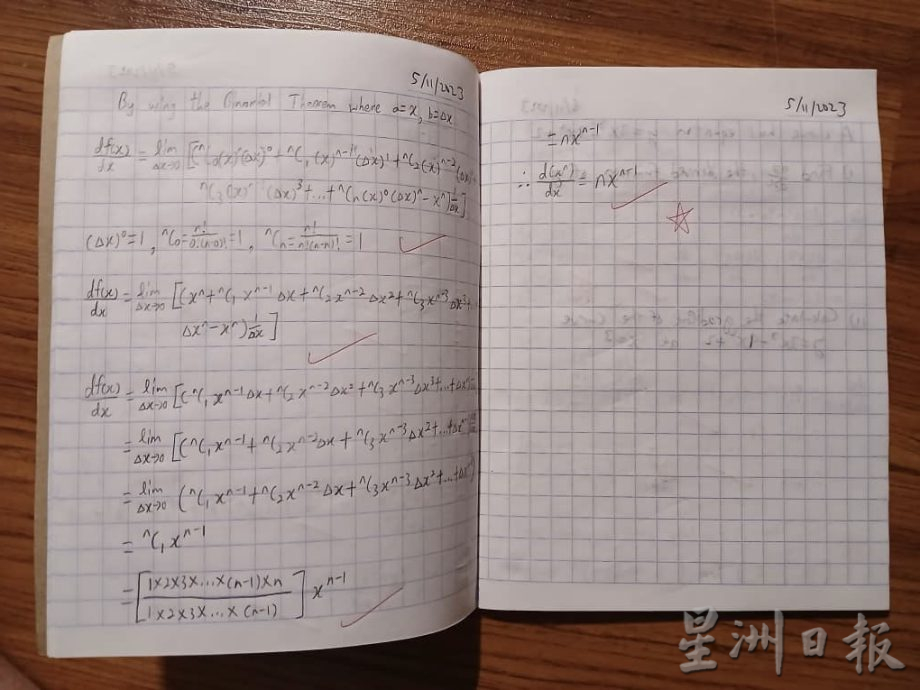 5/11/2023
By using the Binomial Theorem where a=x, b=Δx
df(x)/dx = lim Δx→0 [(ⁿC₀(x)ⁿ(Δx)⁰ + ⁿC₁(x)ⁿ⁻¹(Δx)¹ + ⁿC₂(x)ⁿ⁻²(Δx)²
ⁿC₃(x)ⁿ⁻³(Δx)³ + ... + ⁿCn(x)⁰(Δx)ⁿ − xⁿ) 1/Δx]
(Δx)⁰ = 1, ⁿC₀ = n!/0!(n-0)! = 1, ⁿCn = n!/n!(n-n)! = 1
df(x)/dx = lim Δx→0 [(xⁿ + ⁿC₁xⁿ⁻¹Δx + ⁿC₂xⁿ⁻²Δx² + ⁿC₃xⁿ⁻³Δx³ +
Δxⁿ − xⁿ) 1/Δx]
df(x)/dx = lim Δx→0 [(ⁿC₁xⁿ⁻¹Δx + ⁿC₂xⁿ⁻²Δx² + ⁿC₃xⁿ⁻³Δx³ + ... + Δxⁿ
= lim Δx→0 [(ⁿC₁xⁿ⁻¹ + ⁿC₂xⁿ⁻²Δx + ⁿC₃xⁿ⁻³Δx² + ... + Δxⁿ⁻¹
= lim Δx→0 (ⁿC₁xⁿ⁻¹ + ⁿC₂xⁿ⁻²Δx + ⁿC₃xⁿ⁻³Δx² + ... + Δxⁿ⁻¹)
= ⁿC₁xⁿ⁻¹
= [1×2×3×...×(n-1)×n / 1×2×3×...×(n-1)] xⁿ⁻¹
5/11/2023
= nxⁿ⁻¹
∴ d(xⁿ)/dx = nxⁿ⁻¹
星洲日報